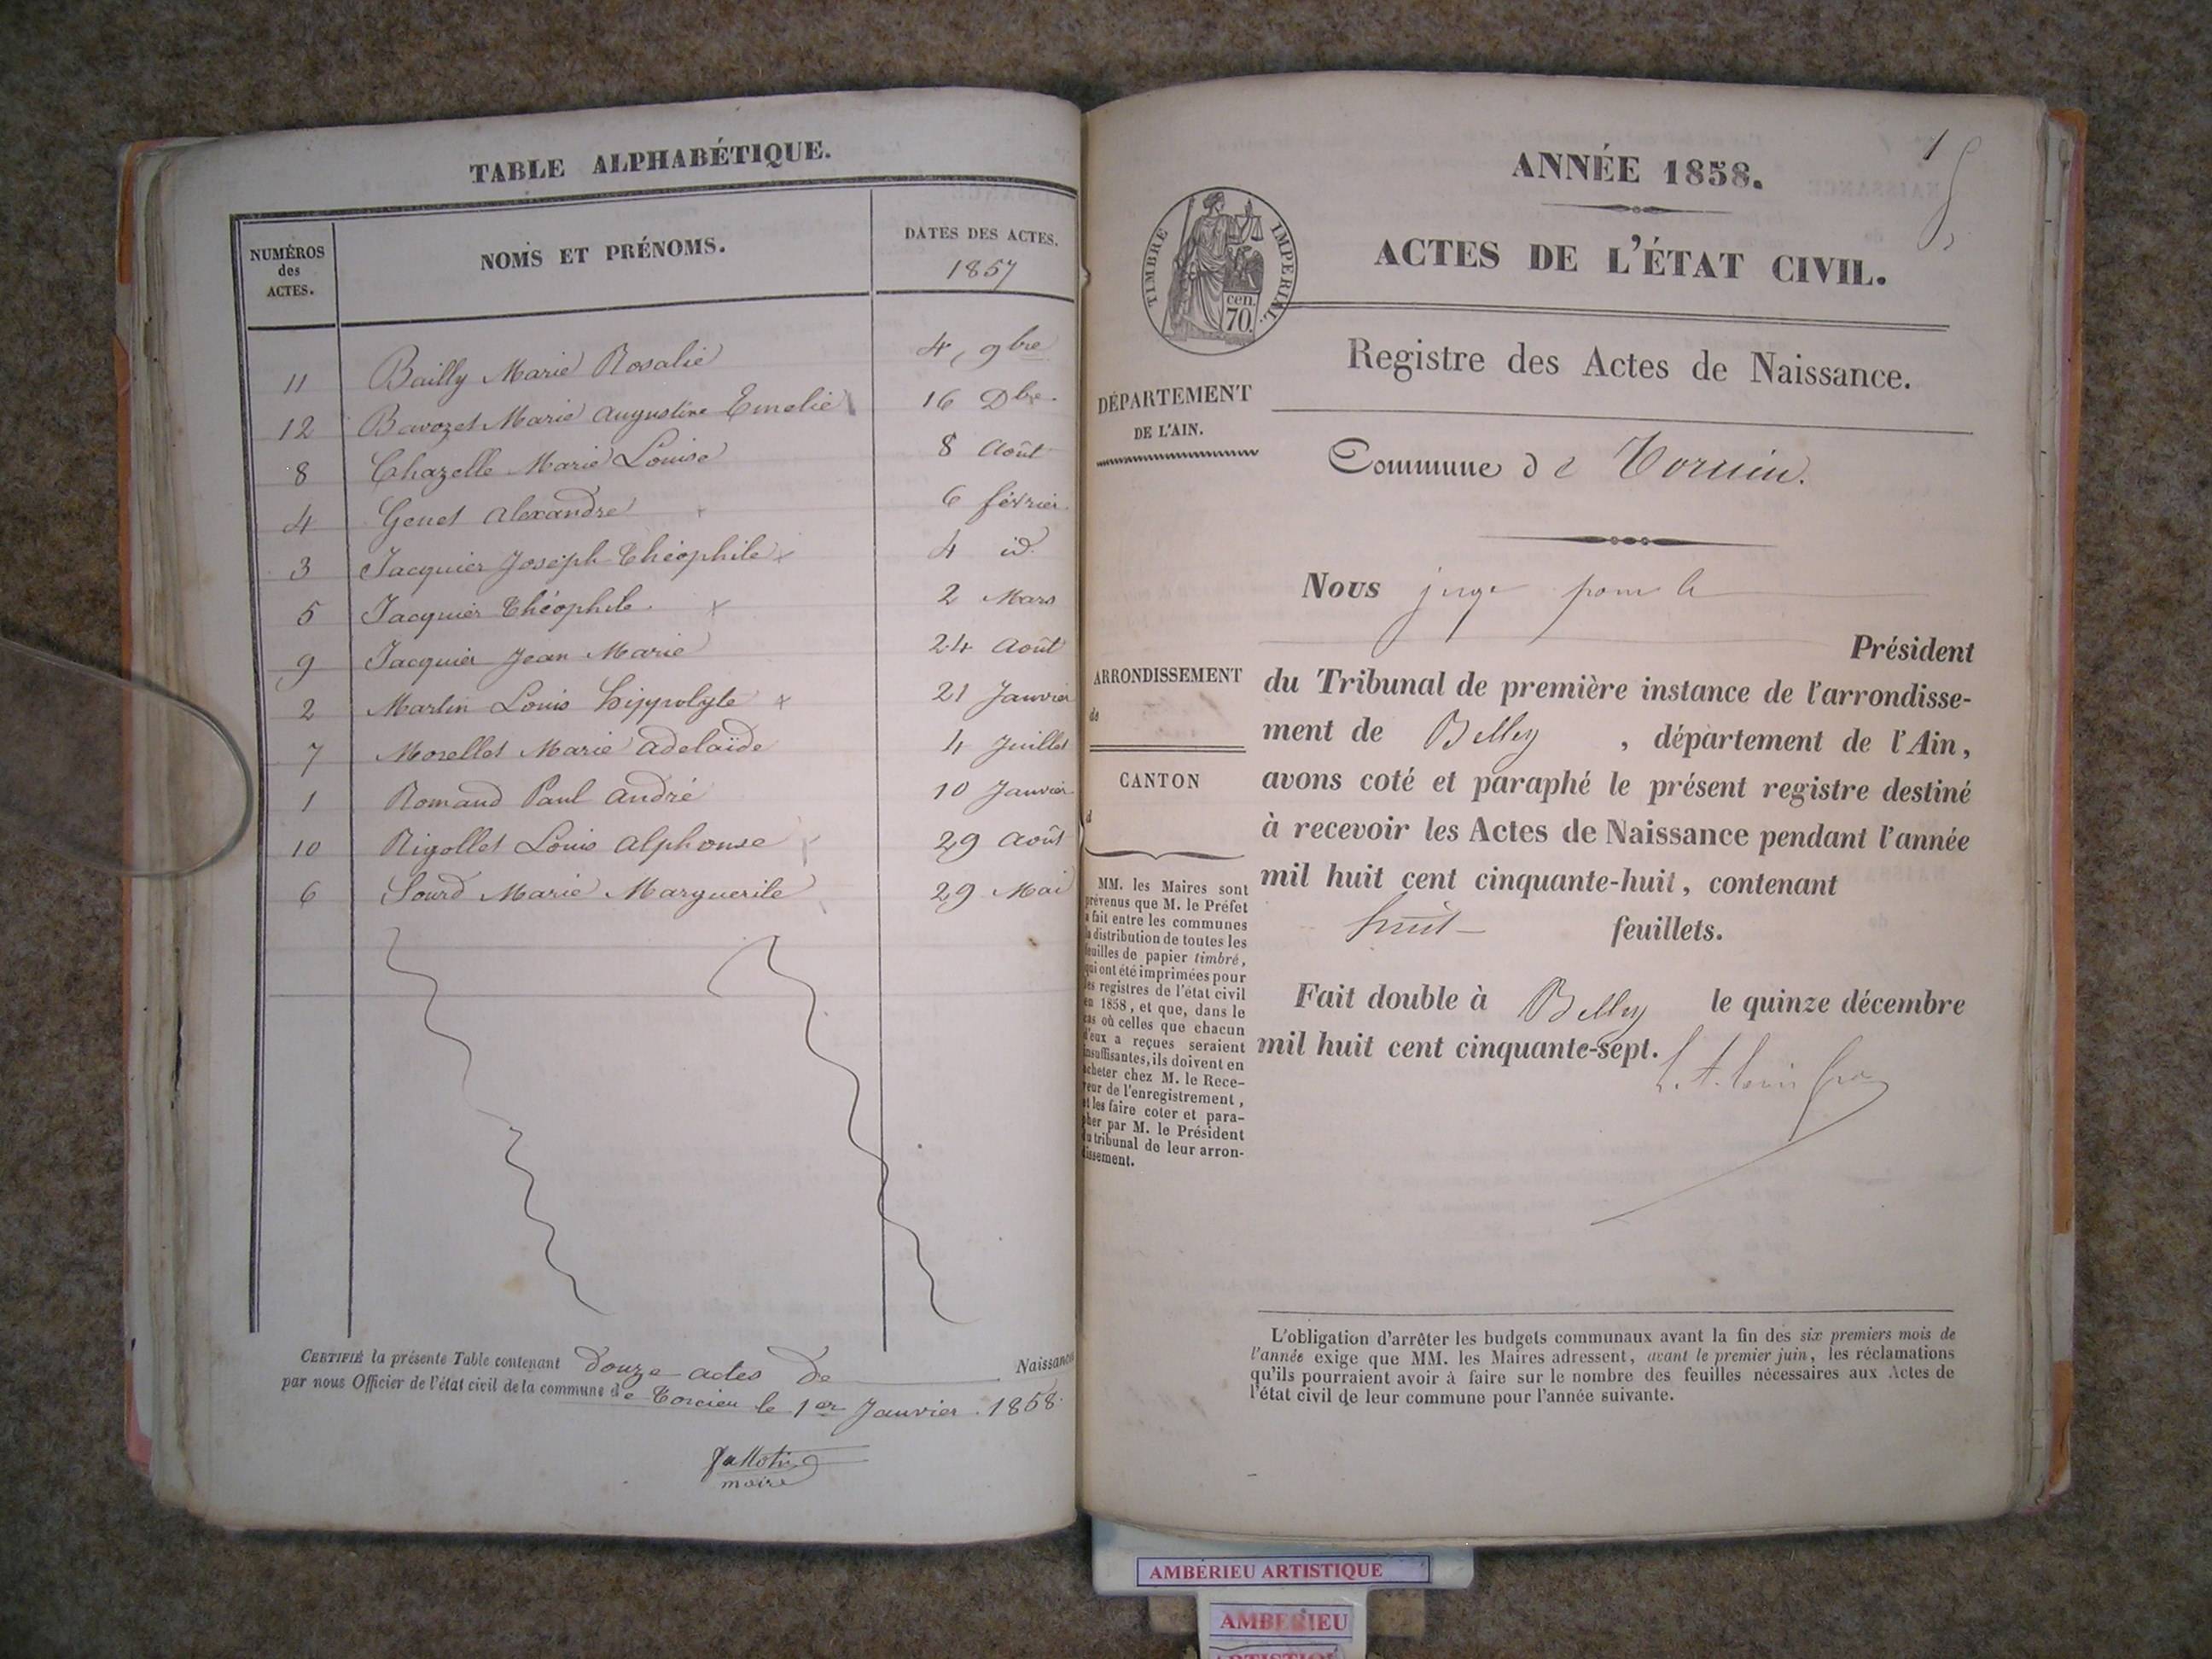 TABLE ALPHABÉTIQUE.
NUMÉROS des ACTES.
NOMS ET PRÉNOMS.
DATES DES ACTES.
1857
11 Bailly Marie Rosalie 4, 9bre
12 Bavozet Marie Augustine Emelie 16 Dbre.
8 Chazelle Marie Louise 8 Août
4 Genet Alexandre 6 février
3 Jacquier Joseph Théophile 4 id.
5 Jacquier Théophile 2 Mars
9 Jacquier Jean Marie 24 Août
2 Martin Louis hippolyte 21 Janvier
7 Morellet Marie Adelaïde 4 Juillet
1 Romand Paul André 10 Janvier
10 Rigollet Louis Alphonse 29 Août
6 Sourd Marie Marguerite 29 Mai
CERTIFIÉ la présente Table contenant douze actes de Naissance
par nous Officier de l'état civil de la commune de Torcieu le 1er Janvier 1858.
maire
1
ANNÉE 1858.
ACTES DE L'ÉTAT CIVIL.
TIMBRE IMPÉRIAL.
cen.
70.
Registre des Actes de Naissance.
DÉPARTEMENT
DE L'AIN.
Commune de Torcieu.
Nous juge pour le
Président
ARRONDISSEMENT
de
CANTON
d
du Tribunal de première instance de l'arrondisse-
ment de Belley, département de l'Ain,
avons coté et paraphé le présent registre destiné
à recevoir les Actes de Naissance pendant l'année
mil huit cent cinquante-huit, contenant
huit feuillets.
Fait double à Belley le quinze décembre
mil huit cent cinquante-sept.
MM. les Maires sont
prévenus que M. le Préfet
a fait entre les communes
la distribution de toutes les
feuilles de papier timbré,
qui ont été imprimées pour
les registres de l'état civil
en 1858, et que, dans le
cas où celles que chacun
d'eux a reçues seraient
insuffisantes, ils doivent en
acheter chez M. le Rece-
veur de l'enregistrement,
et les faire coter et para-
pher par M. le Président
du tribunal de leur arron-
dissement.
L'obligation d'arrêter les budgets communaux avant la fin des six premiers mois de
l'année exige que MM. les Maires adressent, avant le premier juin, les réclamations
qu'ils pourraient avoir à faire sur le nombre des feuilles nécessaires aux Actes de
l'état civil de leur commune pour l'année suivante.
AMBÉRIEU ARTISTIQUE
AMBERIEU
ARTISTIQUE